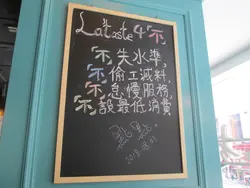 Lataste 4 不
不失水準,
不偷工減料,
不怠慢服務,
不設最低消費